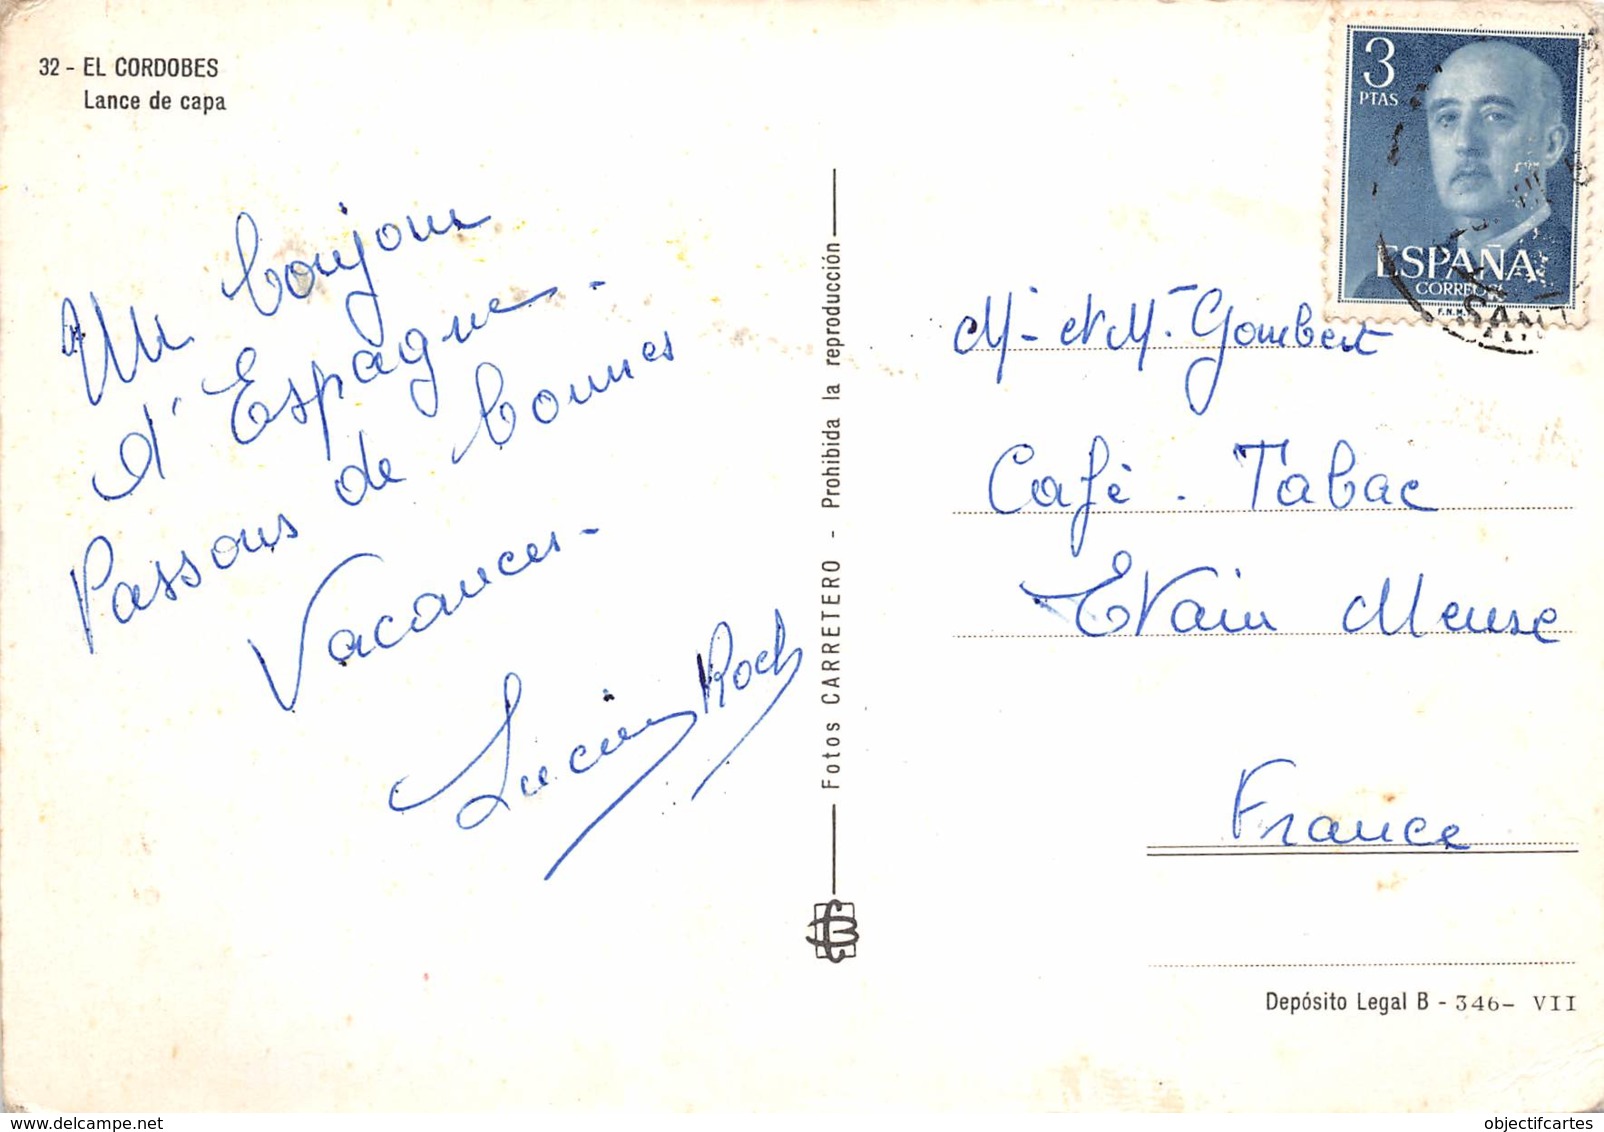 32 - EL CORDOBES
Lance de capa
Un bonjour
d'Espagne.
Passons de bonnes
Vacances.
Lucien Roch
Fotos CARRETERO - Prohibida la reproducción
3
PTAS
ESPAÑA
CORREOS
F.N.M.T.
Mr et Mme Gombert
Café. Tabac
Etain Meuse
France
Depósito Legal B - 346- VII
objectifcartes